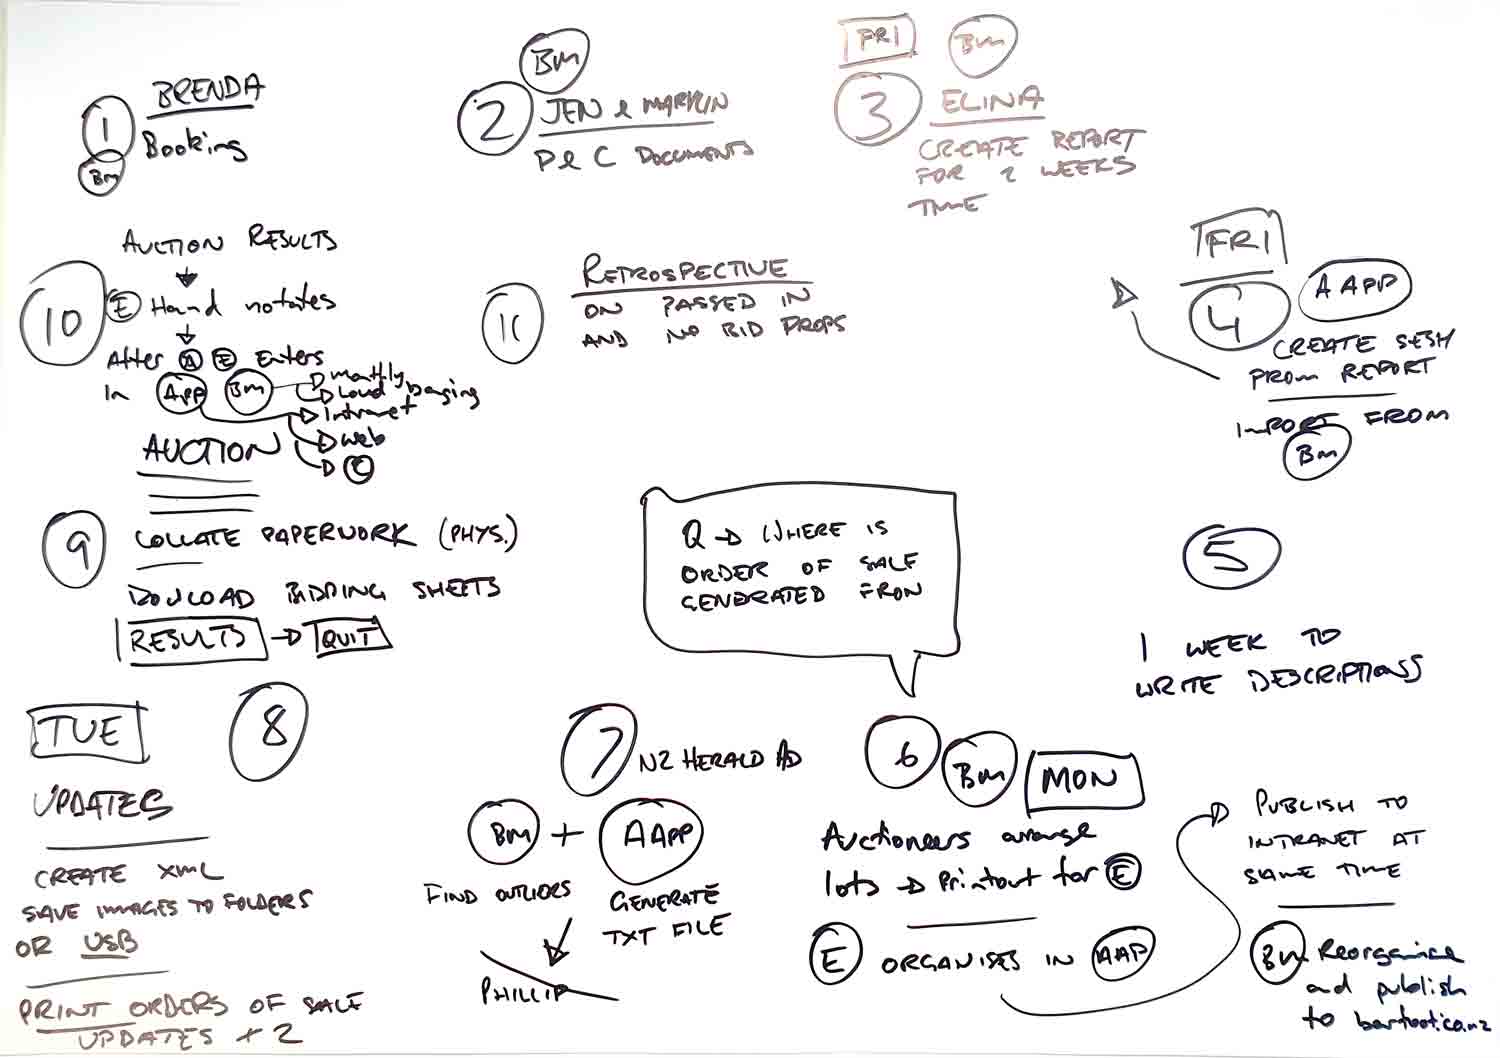 1
BRENDA
Booking
Bm
Bm
2
JEN & MARTIN
D & C DOCUMENTS
FRI
Bm
3
ELINA
CREATE REPORT
FOR 2 WEEKS
TIME
FRI
4
A APP
CREATE SESH
FROM REPORT
IMPORT FROM
Bm
5
1 WEEK TO
WRITE DESCRIPTIONS
Q → WHERE IS
ORDER OF SALE
GENERATED FROM
6
Bm
MON
Auctioneers arrange
lots → Printout for E
E ORGANISES IN AAP
PUBLISH TO
INTRANET AT
SAME TIME
Bm Reorganise
and publish
to barfoot.co.nz
7
NZ HERALD AD
Bm + A APP
FIND OUTLIORS
GENERATE
TXT FILE
PHILLIP
TUE
8
UPDATES
CREATE XML
SAVE IMAGES TO FOLDERS
OR USB
PRINT ORDERS OF SALE
UPDATES × 2
9
COLLATE PAPERWORK (PHYS.)
DOWLOAD BIDDING SHEETS
RESULTS → QUIT
10
AUCTION RESULTS
E Hand notates
After A E Enters
In APP Bm
monthly
Loud banging
Intranet
Web
C
AUCTION
11
RETROSPECTIVE
ON PASSED IN
AND NO BID PROPS